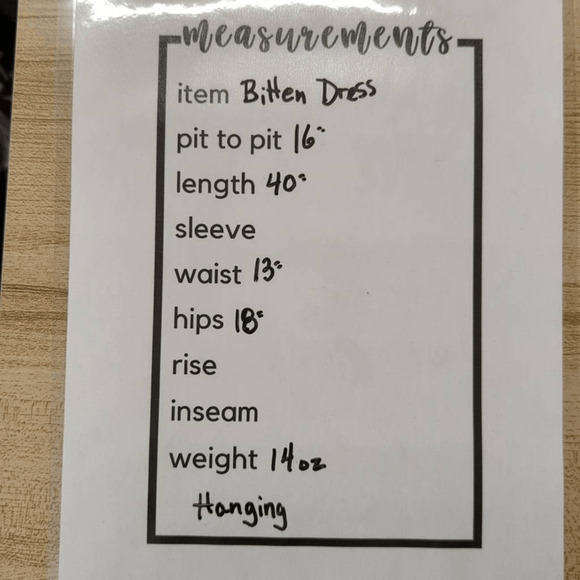 measurements
item Bitten Dress
pit to pit 16"
length 40"
sleeve
waist 13"
hips 18"
rise
inseam
weight 14oz
Hanging